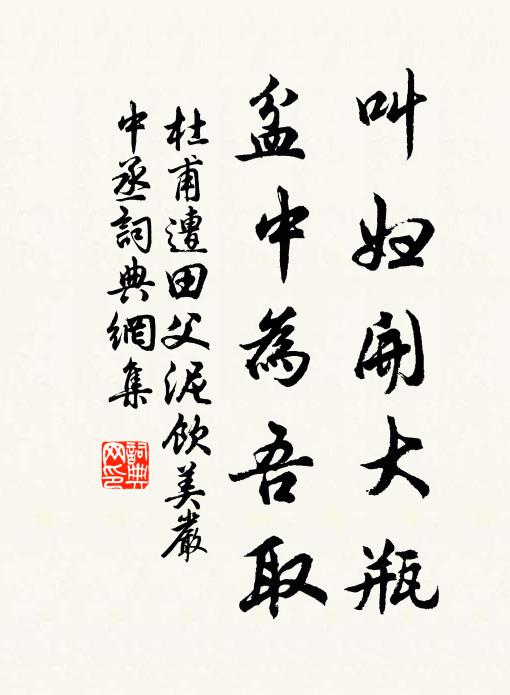 叫妇開大瓶
盆中為吾取
杜甫遭田父泥飲美嚴
中丞詞典網集
詞典
网印